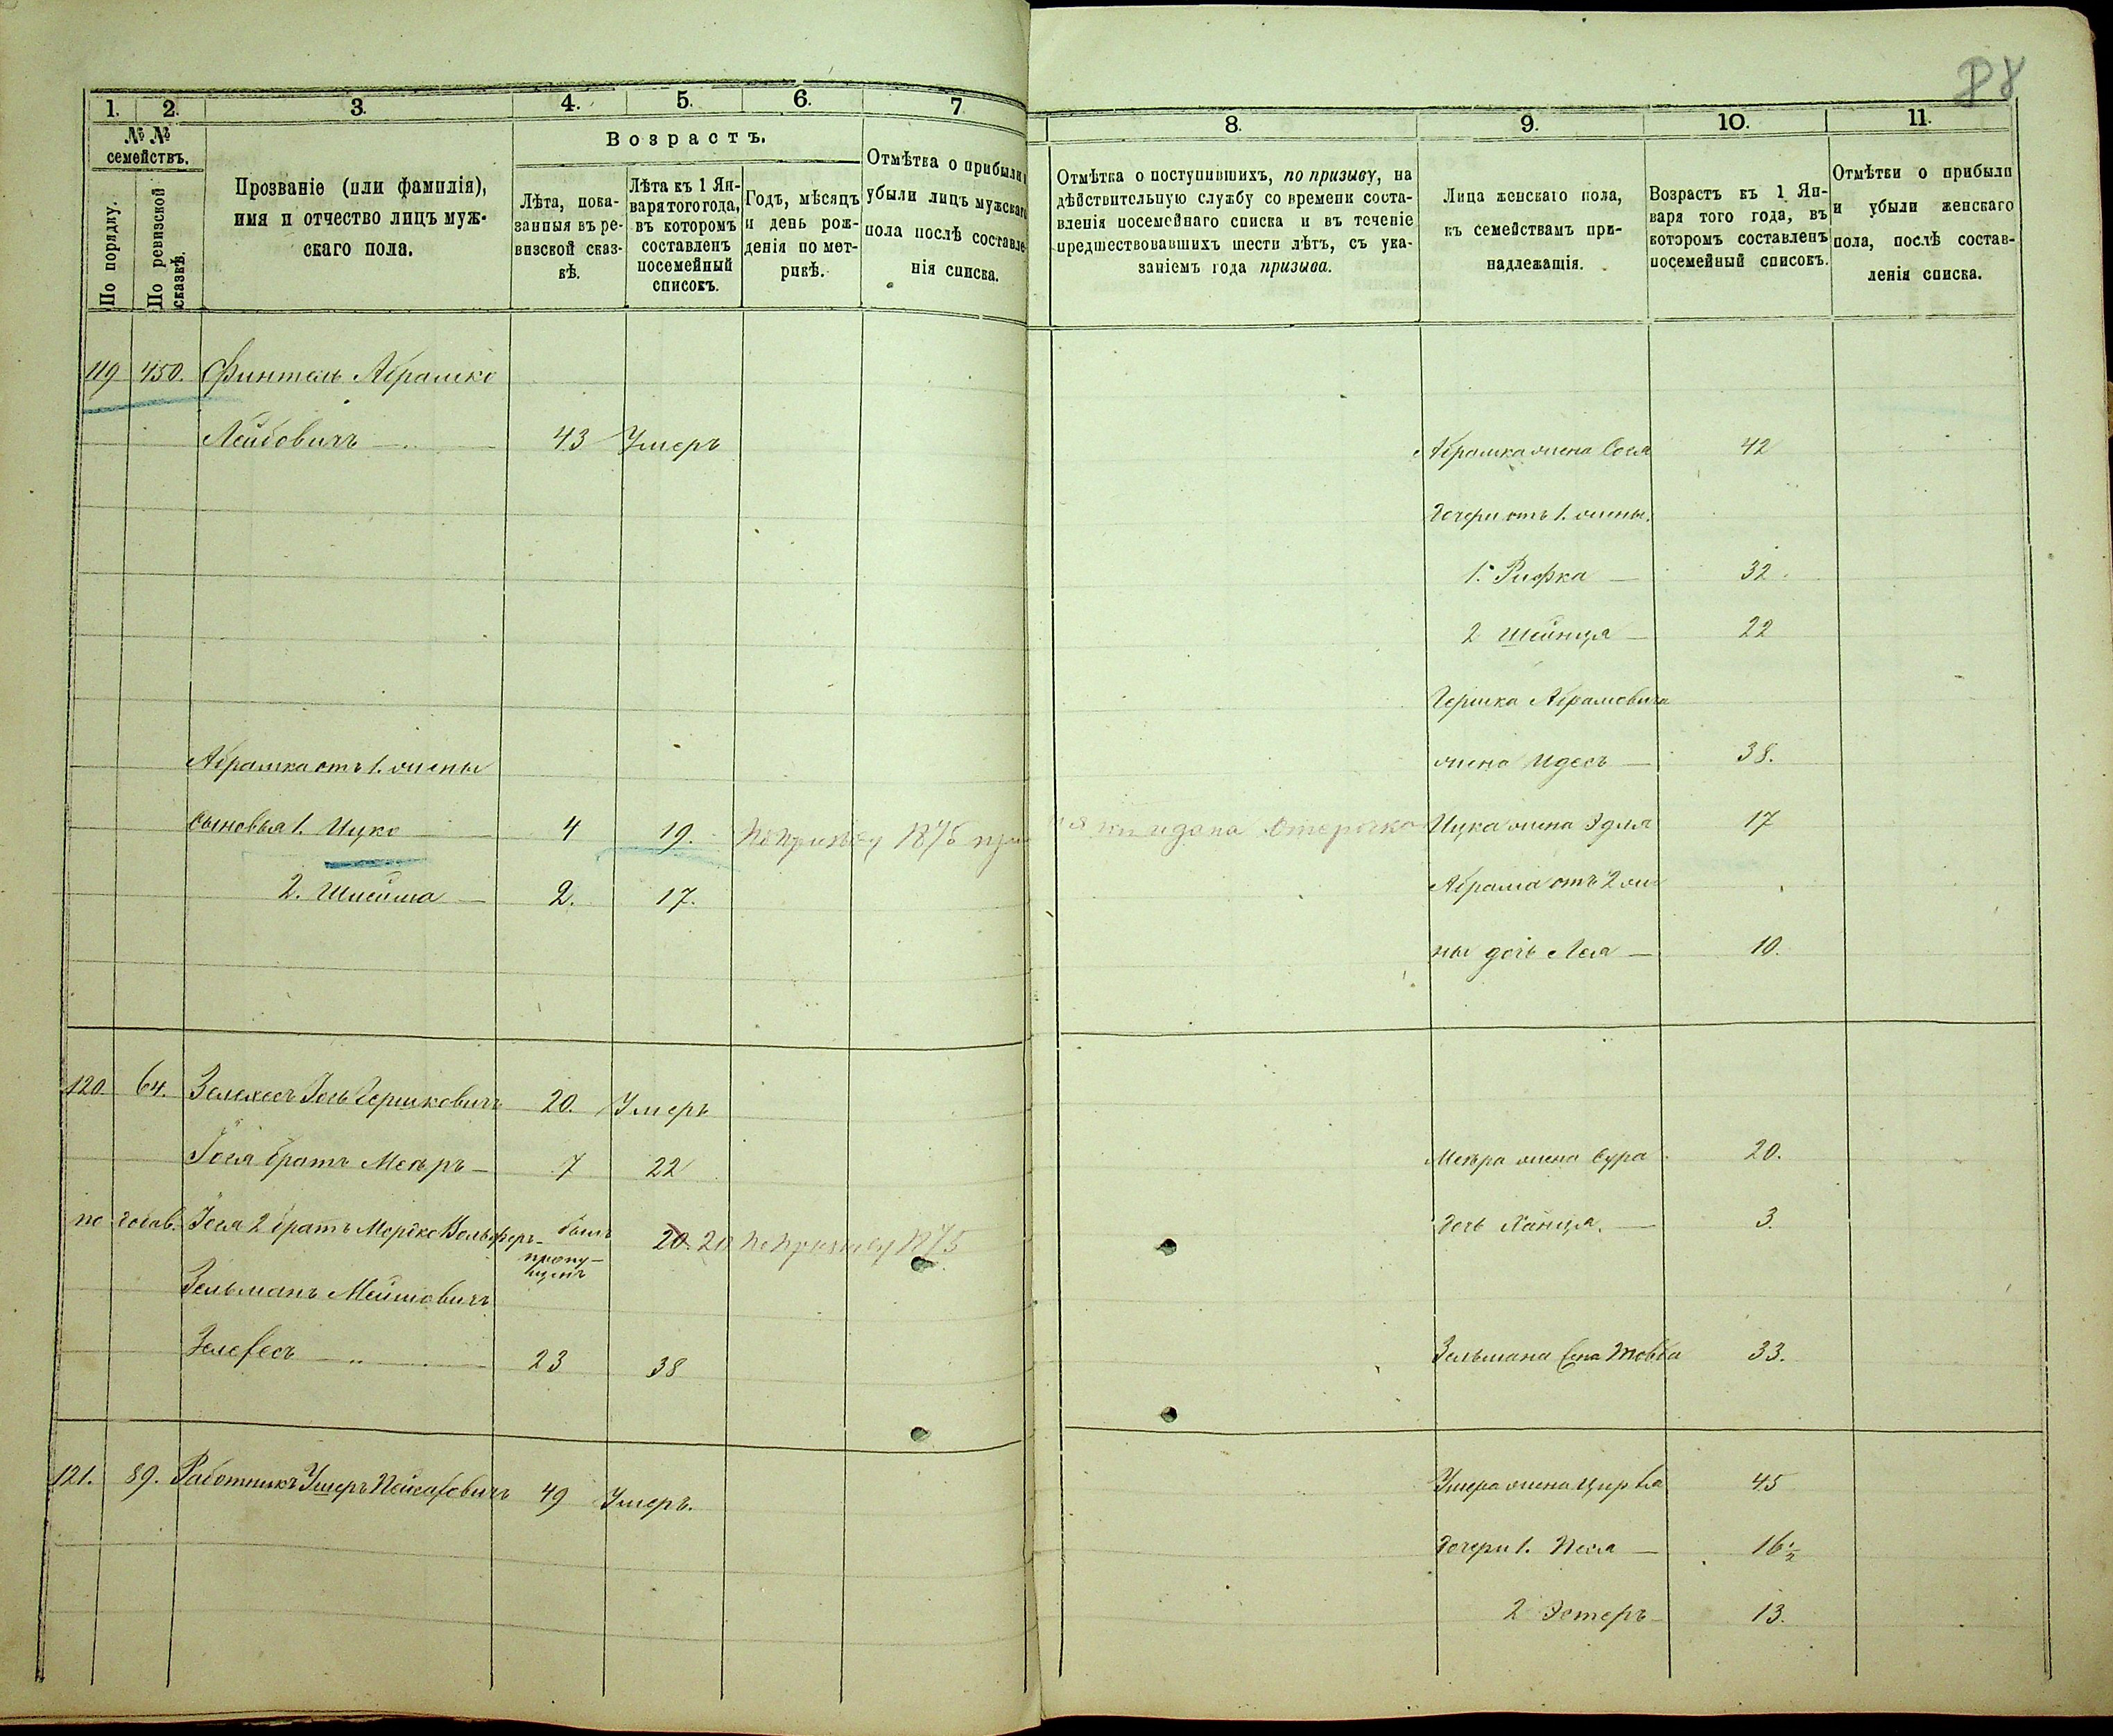 88
1. 2. 3. 4. 5. 6. 7
№ № семействъ.
По порядку.
По ревизской сказкѣ.
Прозваніе (или фамилія),
имя и отчество лицъ муж-
скаго пола.
Возрастъ.
Лѣта, пока-
занныя въ ре-
визской сказ-
кѣ.
Лѣта къ 1 Ян-
варя того года,
въ которомъ
составленъ
посемейный
списокъ.
Годъ, мѣсяцъ
и день рож-
денія по мет-
рикѣ.
Отмѣтка о прибыли и
убыли лицъ мужскаго
пола послѣ составле-
нія списка.
8. 9. 10. 11.
Отмѣтка о поступившихъ, по призыву, на
дѣйствительную службу со времени соста-
вленія посемейнаго списка и въ теченіе
предшествовавшихъ шести лѣтъ, съ ука-
заніемъ года призыва.
Лица женскаго пола,
къ семействамъ при-
надлежащія.
Возрастъ къ 1 Ян-
варя того года, въ
которомъ составленъ
посемейный списокъ.
Отмѣтки о прибыли
и убыли женскаго
пола, послѣ состав-
ленія списка.
119 450. Финтель Абрамко
Лейбовичъ 43 Умеръ
Абрамка жена Сося 42
Дочери отъ 1. жены.
1. Рифка 32
2 Шейнця 22
Гершка Абрамовича
жена Идесъ 38.
Абрамка отъ 1. жены
сыновья 1. Ицко 4 19. По призыву 1875 отсрочка
Ицка жена Эдля 17
2. Шлейма 2. 17.
Абрама отъ 2 же
ны дочь Лея 10.
120 64. Зелехесъ Іось Гершковичъ 20. Умеръ
Іося братъ Меєръ 7 22
Меєра жена Сура 20.
по добав. Іося 2 братъ Мордко Вольферъ былъ пропу-
щенъ 20. 20 По призыву 1875
дочь Ханця. 3.
Зельманъ Меишовичъ
Зелехесъ 23 38
Зельмана жена Товба 33.
121. 89. Работникъ Ушеръ Пейсаховичъ 49 Умеръ.
Ушера жена Цирля 45
Дочери 1. Песя 16½
2 Эстеръ 13.